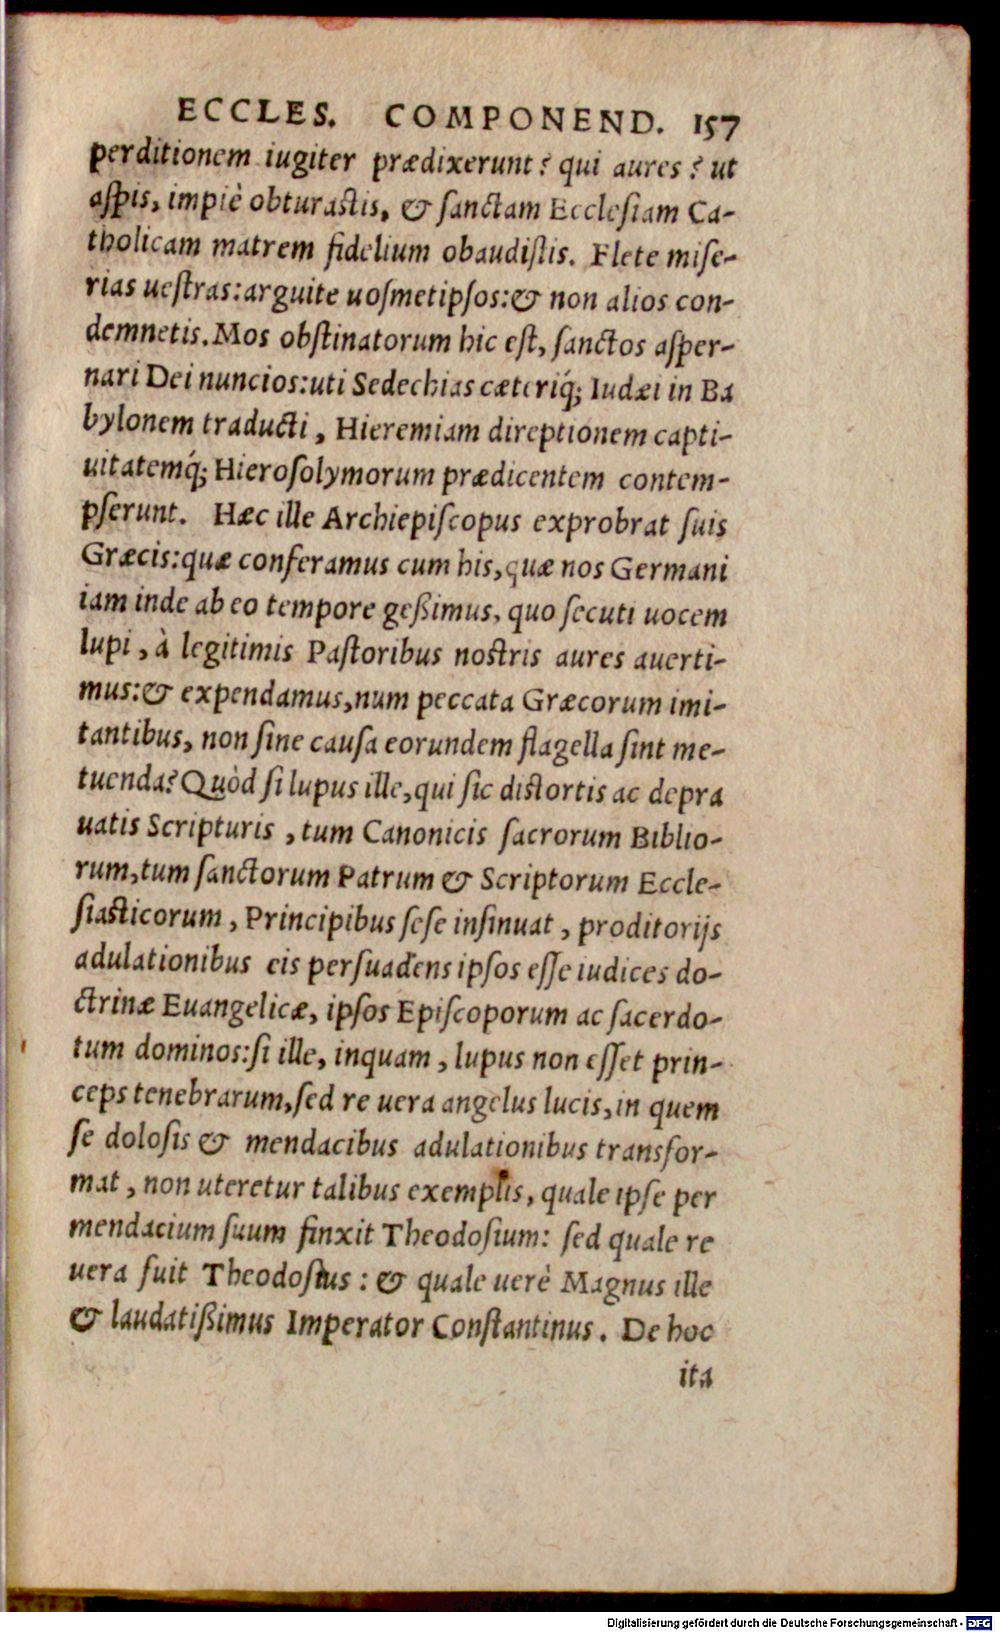 ECCLES. COMPONEND. 157
perditionem iugiter prædixerunt? qui aures? ut
aſpis, impiè obturaſtis, & ſanctam Eccleſiam Ca-
tholicam matrem fidelium obaudiſtis. Flete miſe-
rias ueſtras: arguite uoſmetipſos: & non alios con-
demnetis. Mos obſtinatorum hic eſt, ſanctos aſper-
nari Dei nuncios: uti Sedechias cæteriq́; Iudæi in Ba
bylonem traducti, Hieremiam direptionem capti-
uitatemq́; Hieroſolymorum prædicentem contem-
pſerunt. Hæc ille Archiepiſcopus exprobrat ſuis
Græcis: quæ conferamus cum his, quæ nos Germani
iam inde ab eo tempore geßimus, quo ſecuti uocem
lupi, à legitimis Paſtoribus noſtris aures auerti-
mus: & expendamus, num peccata Græcorum imi-
tantibus, non ſine cauſa eorundem flagella ſint me-
tuenda? Quòd ſi lupus ille, qui ſic diſtortis ac depra
uatis Scripturis, tum Canonicis ſacrorum Biblio-
rum, tum ſanctorum Patrum & Scriptorum Eccle-
ſiaſticorum, Principibus ſeſe inſinuat, proditorijs
adulationibus eis perſuadens ipſos eſſe iudices do-
ctrinæ Euangelicæ, ipſos Epiſcoporum ac ſacerdo-
tum dominos: ſi ille, inquam, lupus non eſſet prin-
ceps tenebrarum, ſed re uera angelus lucis, in quem
ſe doloſis & mendacibus adulationibus transfor-
mat, non uteretur talibus exemplis, quale ipſe per
mendacium ſuum finxit Theodoſium: ſed quale re
uera fuit Theodoſius: & quale uerè Magnus ille
& laudatißimus Imperator Conſtantinus. De hoc
ita
Digitalisierung gefördert durch die Deutsche Forschungsgemeinschaft - DFG